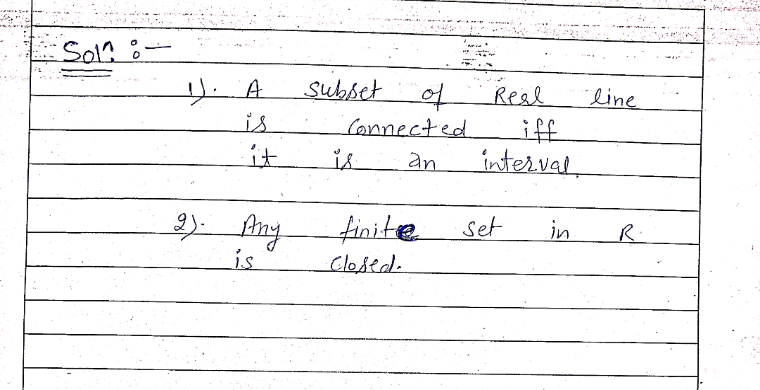 Solⁿ :-
1). A subset of Real line
is Connected iff
it is an interval.
2). Any finite set in R
is Closed.